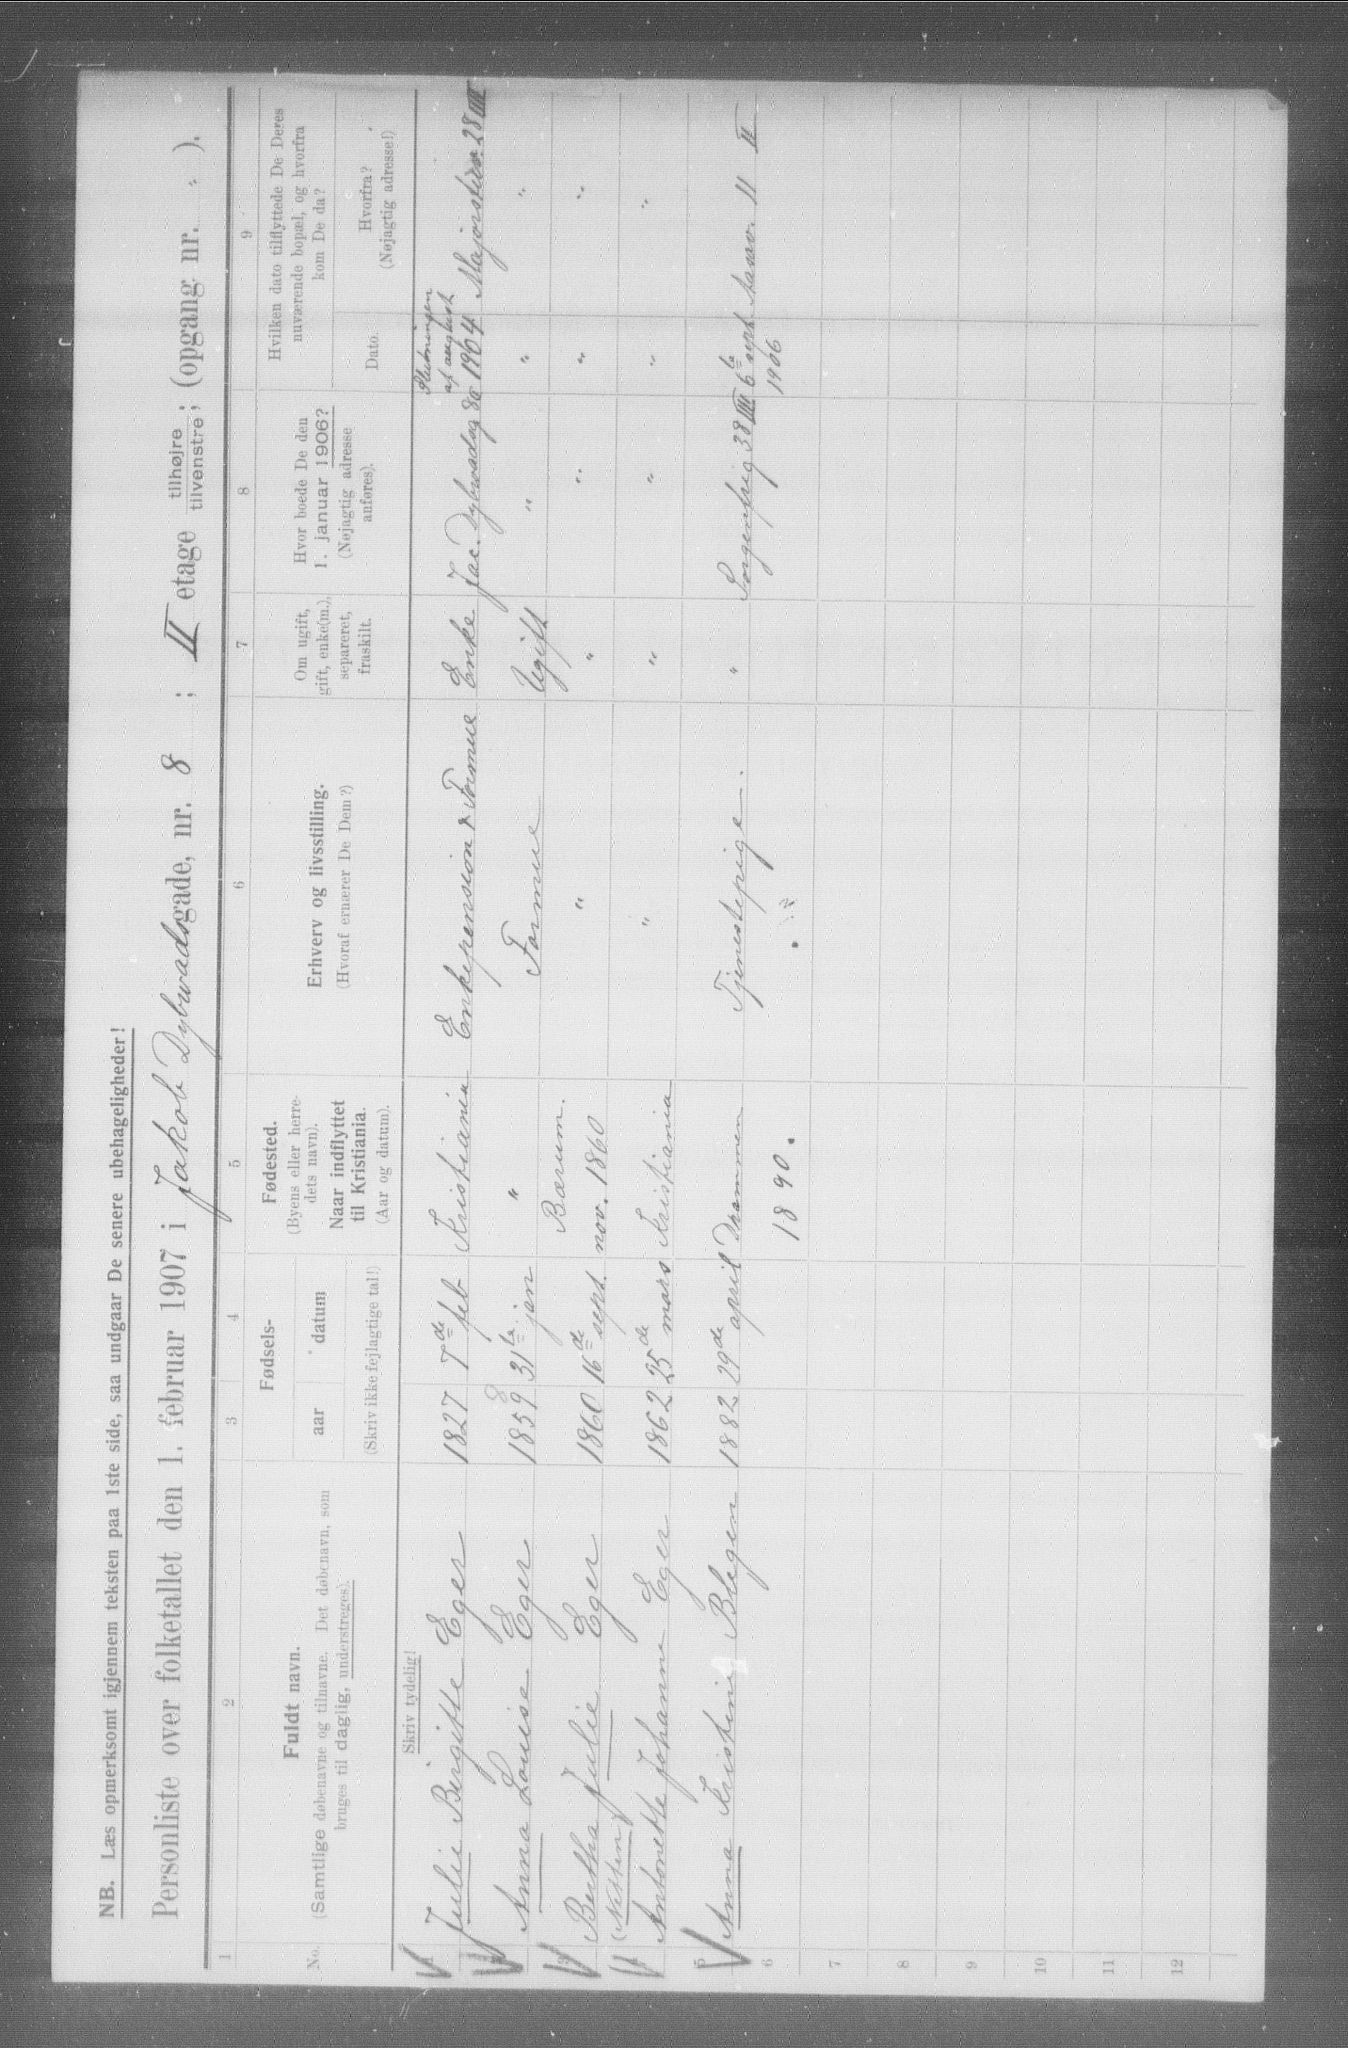 NB. Læs opmerksomt igjennem teksten paa 1ste side, saa undgaar De senere ubehageligheder!
Personliste over folketallet den 1. februar 1907 i Jakob Dybwadsgade, nr. 8 ; II etage tilhøjre; tilvenstre; (opgang nr. " ).
1 2 3 4 5 6 7 8 9
No.
Fuldt navn.
(Samtlige døbenavne og tilnavne. Det døbenavn, som
bruges til daglig, understreges).
Fødsels-
aar datum
(Skriv ikke fejlagtige tal!)
Fødested.
(Byens eller herre-
dets navn).
Naar indflyttet
til Kristiania.
(Aar og datum).
Erhverv og livsstilling.
(Hvoraf ernærer De Dem?)
Om ugift,
gift, enke(m.),
separeret,
fraskilt.
Hvor boede De den
1. januar 1906?
(Nøjagtig adresse
anføres).
Hvilken dato tilflyttede De Deres
nuværende bopæl, og hvorfra
kom De da?
Dato.
Hvorfra?
(Nøjagtig adresse!)
Skriv tydelig!
Slutningen
af august
1 Julie Birgitte Eger 1827 7de feb Kristiania Enkepension & Formue Enke Jac. Dybwadsg 8a 1904 Majorstuv. 28 III
2 Anna Louise Eger 1859 31te jan " Formue Ugift " " "
Bærum.
3 Bertha Julie Eger 1860 16de sept. nov. 1860 " " " " "
(Netten)
4 Antonette Johanne Eger 1862 25de mars Kristiania " " " " "
5 Anna Kristine Blegen 1882 29de april Drammen Tjenestepige. " Sorgenfrig 38 III 6te sept. 11 II
6 1890. 1906
7
8
9
10
11
12